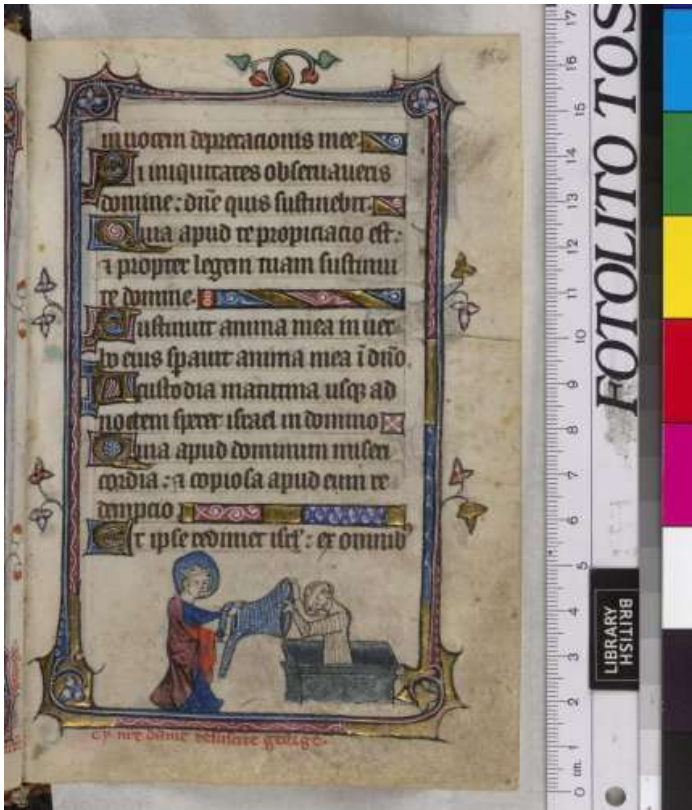 in uocem deprecacionis mee
Si iniquitates obseruaueris
domine : dñe quis sustinebit.
Quia apud te propiciacio est :
⁊ propter legem tuam sustinui
te domine.
Sustinuit anima mea in uer
bo eius sperauit anima mea ĩ dño
A custodia matutina usq; ad
noctem speret israel in domino
Quia apud dominum miseri
cordia : ⁊ copiosa apud eum re
dempcio
Et ipse redimet isrl' : ex omnib'
cy nre dame resuscite george.
FOTOLITO TOS
17
16
15
14
13
12
11
10
9
8
7
6
5
4
3
2
1
0 cm.
BRITISH
LIBRARY